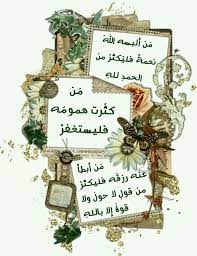 من ألبسه الله
نعمةً فليكثر من
الحمد لله
من
كثرت همومه
فليستغفر
من أبطأ
عنه رزقه فليكثر
من قول لا حول ولا
قوة إلا بالله